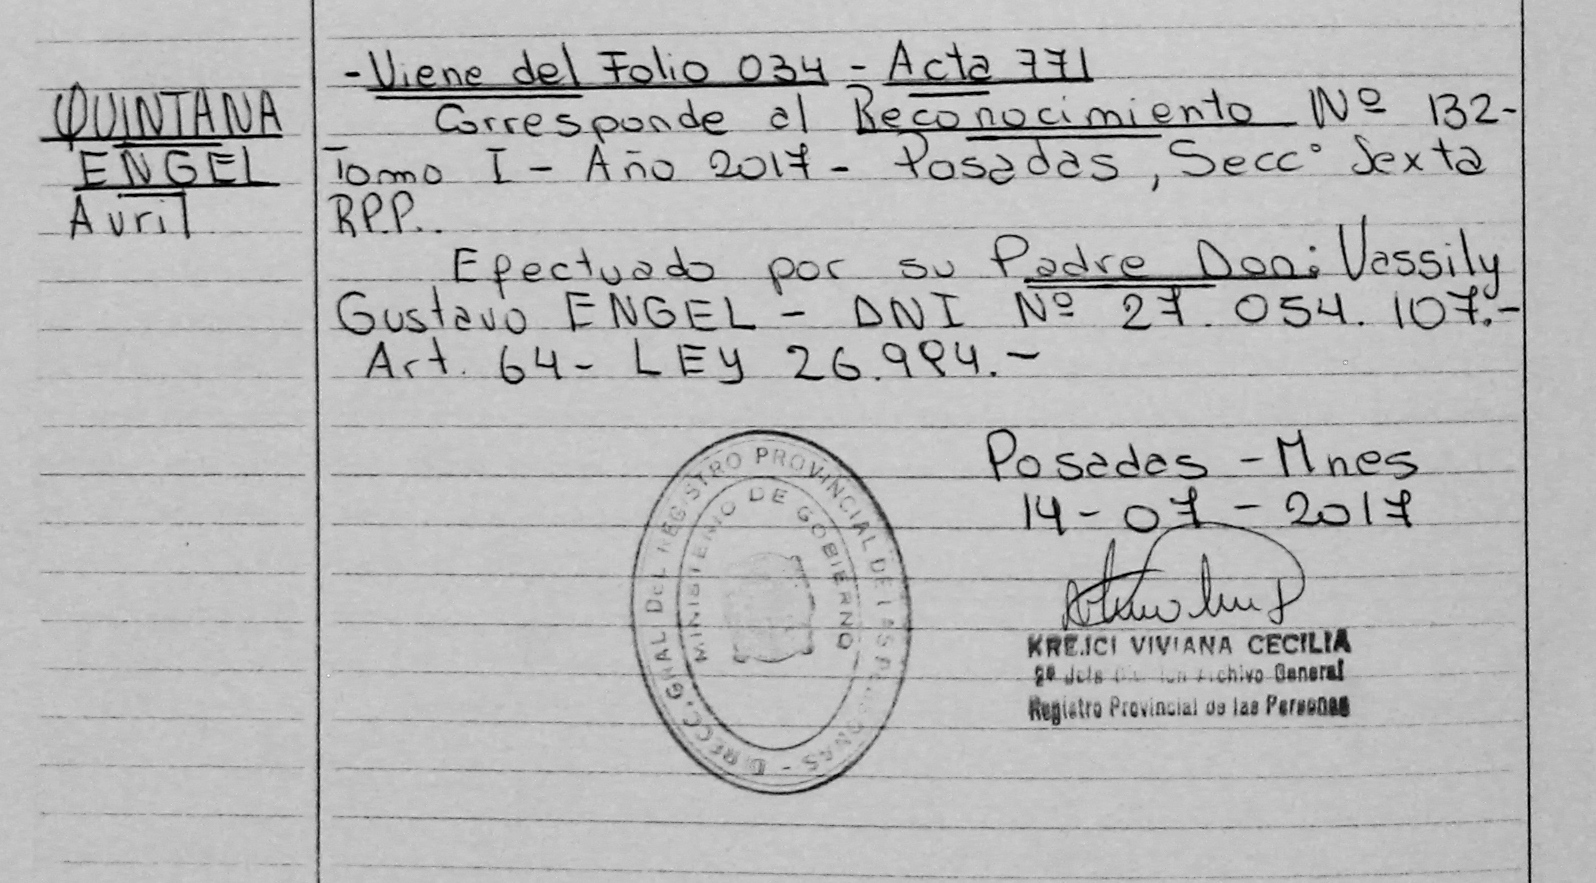 QUINTANA
ENGEL
Avril
-Viene del Folio 034 - Acta 771
Corresponde al Reconocimiento Nº 132-
Tomo I - Año 2017 - Posadas, Secc° Sexta
RPP..
Efectuado por su Padre Don: Vassily
Gustavo ENGEL - DNI Nº 27.054.107.-
Art. 64- LEY 26.994.-
Posadas - Mnes
14-07-2017
DIRECC. GRAL DEL REGISTRO PROVINCIAL DE LAS PERSONAS -
MINISTERIO DE GOBIERNO
KREJCI VIVIANA CECILIA
2º Jefe Archivo General
Registro Provincial de las Personas